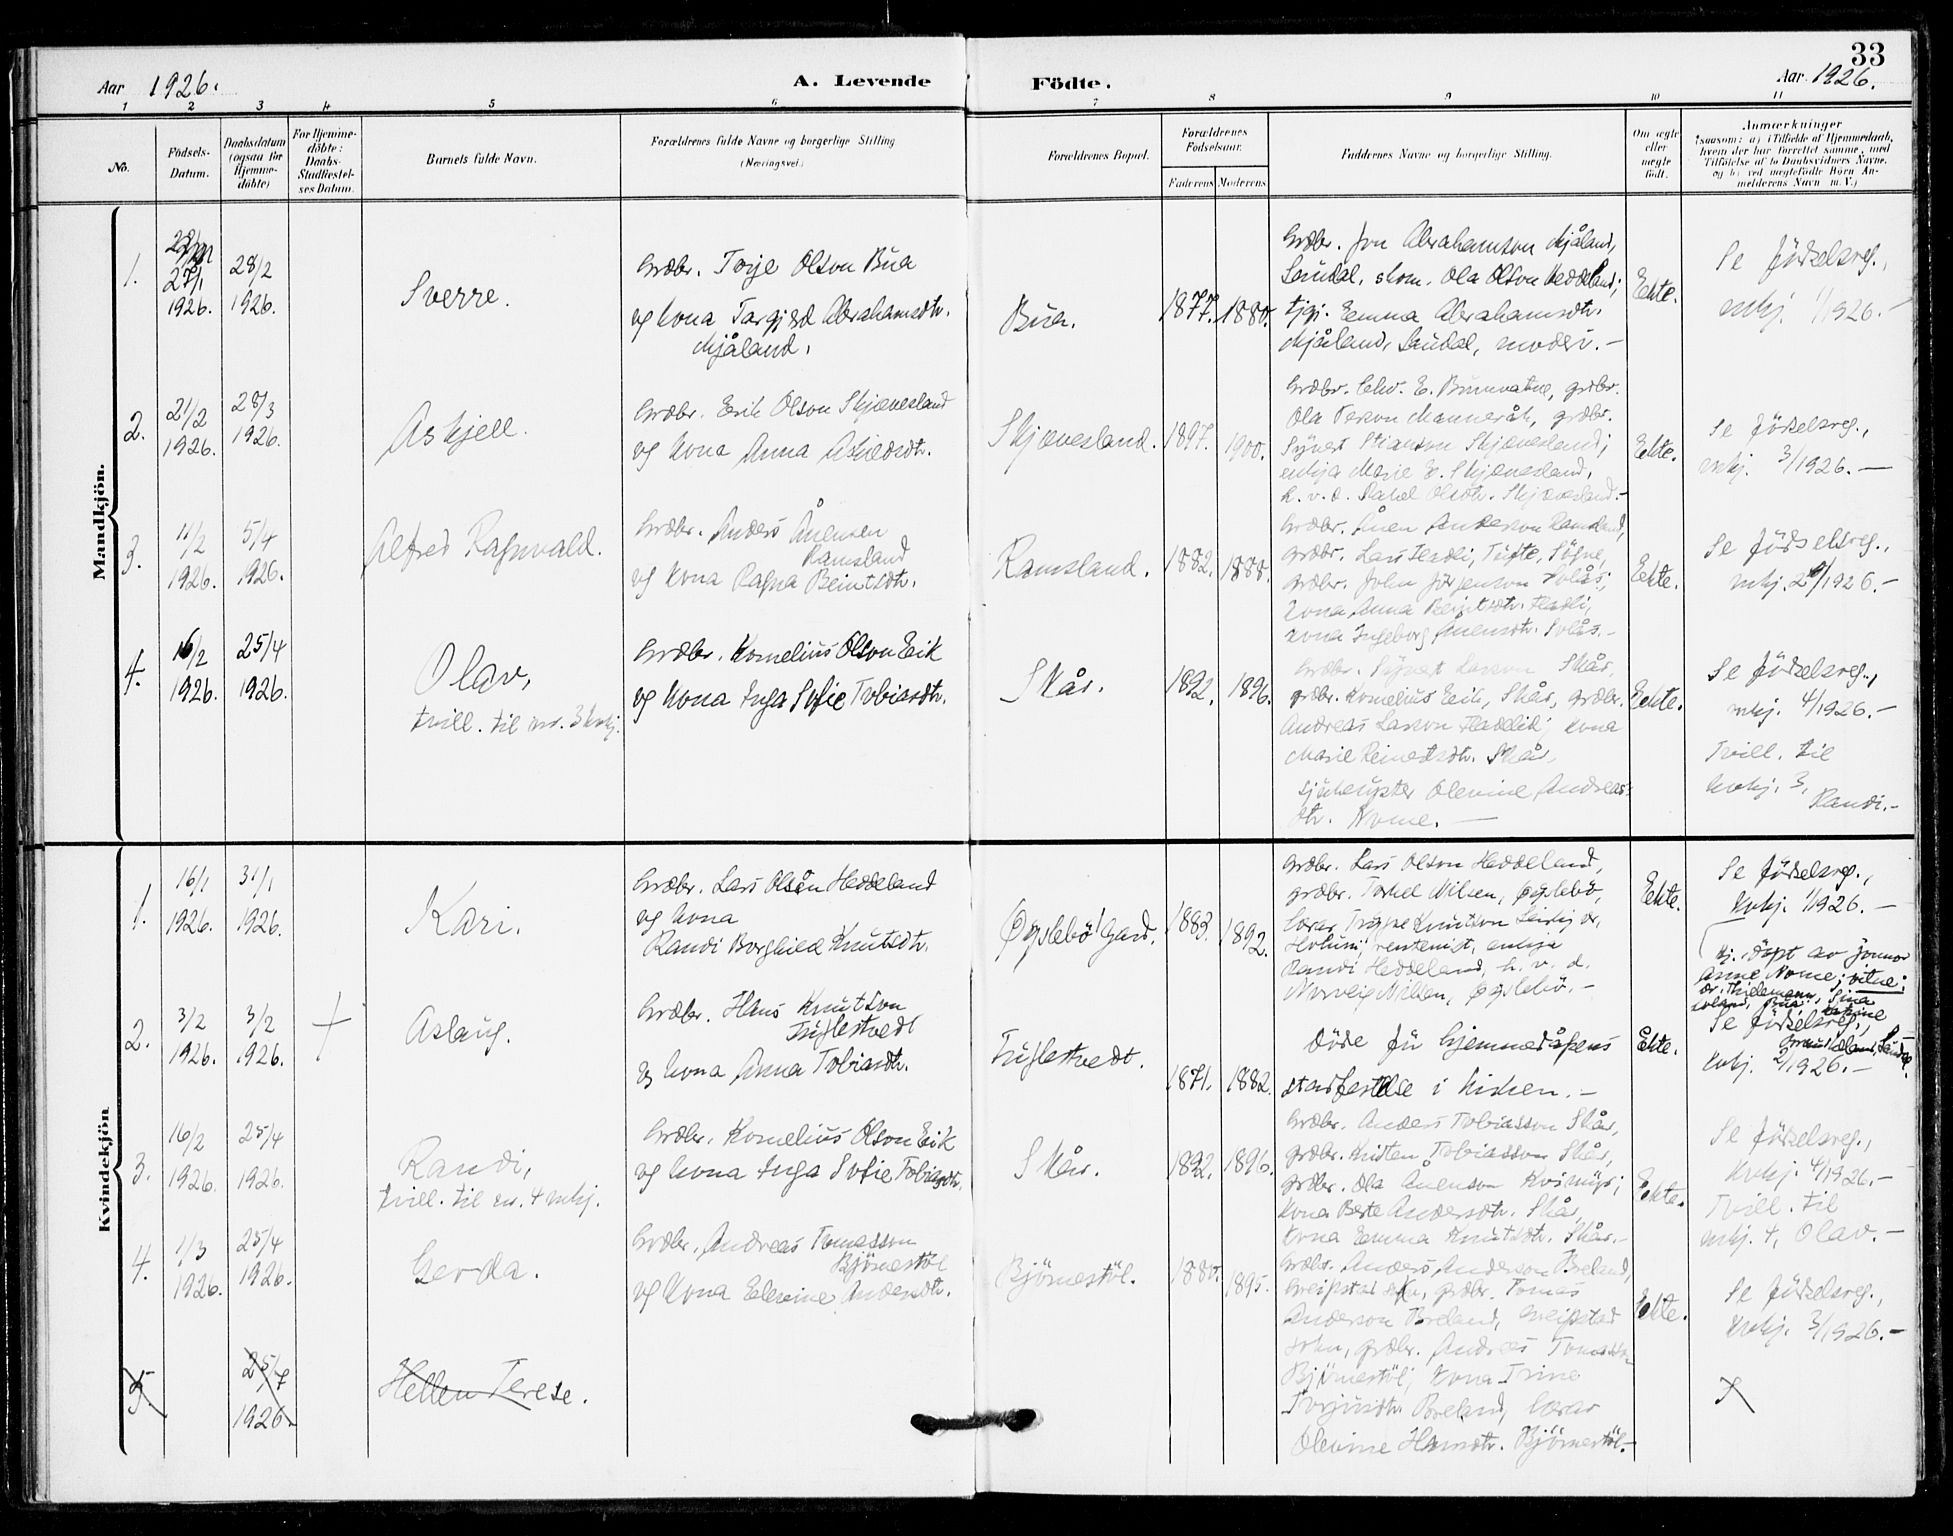 33
Aar 1926.
A. Levende Födte.
Aar 1926.
1 2 3 4 5 6 7 8 9 10 11
No.
Födsels-
Datum.
Daabsdatum
(ogsaa for
Hjemme-
döbte)
For Hjemme-
döbte:
Daabs-
Stadfæstel-
ses Datum.
Barnets fulde Navn.
Forældrenes fulde Navne og borgerlige Stilling
(Næringsvei.)
Forældrenes Bopæl.
Forældrenes
Födselsaar.
Faderens Moderens
Faddernes Navne og borgerlige Stilling.
Om ægte
eller
uægte
födt.
Anmærkninger
(saasom: a) i Tilfælde af Hjemmedaab,
hvem der har forrettet samme, med
Tilföielse af to Daabsvidners Navne,
og b) ved uægtefödte Börn An-
melderens Navn m. V.)
Mandkjön.
1.
27/1
1926.
28/2
1926.
Sverre.
Grdbr. Torje Olson Bua
og kona Targjerd Abrahamsdtr.
Mjåland.
Bua.
1877.
1880.
Grdbr. Jon Abrahamson Mjåland,
Laudal, skom. Ola Olson Heddeland;
tjgj. Emma Abrahamsdtr.
Mjåland, Laudal, moderi.-
Ekte.
Se födselsreg.,
mkj. 1/1926.-
2.
21/2
1926.
28/3
1926.
Askjell.
Grdbr. Erik Olson Skjævesland
og kona Anna Asluedsdtr.
Skjævesland.
1897.
1900.
Grdbr. E. grdbr.
Ola Manneråk, grdbr.
Syvert Skjævesland;
enkja Marie E. Skjævesland,
h. v. d. Rakel Olsdtr. Skjævesland.-
Ekte.
Se födselsreg.,
mkj. 3/1926.-
3.
11/2
1926.
5/4
1926.
Alfred Ragnvald.
Grdbr. Anders Ånensen
Ramsland
og kona Ragna Beintsdtr.
Ramsland.
1882.
1888.
Grdbr. Ånen Anderson Ramsland,
grdbr. Lars Tufte, Søgne,
grdbr. John Jørgenson Solås;
kona Anna Beintsdtr.
kona Ingeborg Ånensdtr. Solås.-
Ekte.
Se födselsreg.,
mkj. 2/1926.-
4.
16/2
1926.
25/4
1926.
Olav,
tvill. til nr. 3 kvkj.
Grdbr. Kornelius Olson Eik
og kona Inga Sofie Tobiasdtr.
Skår.
1892.
1896.
Grdbr. Syvert Larson Skår,
grdbr. Kornelius Eik, Skår, grdbr.
Andreas Larson kona
Marie Reinertsdtr. Skår,
sjukeuyster Olevine Andreas-
dtr. Nome.-
Ekte.
Se födselsreg.,
mkj. 4/1926.-
Tvill. til
kvkj. 3,
Randi.-
Kvindekjön
1.
16/1
1926.
31/1
1926.
Kari.
Grdbr. Lars Olsön Heddeland
og kona
Randi Borghild Knutsdtr.
Øyslebö Gard.
1883.
1892.
Grdbr. Lars Olson Heddeland,
grdbr. Torkel Nilsen, Øyslebö,
lærar Trygve Knutson
Holum; rentenist, enkja
Randi Heddeland, h. v. d.
Nilsen, Øyslebö.-
Ekte.
Se födselsreg.,
kvkj. 1/1926.-
2.
3/2
1926.
3/2
1926.
+
Aslaug.
Grdbr. Hans Knutson
Fuglestvedt
og kona Anna Tobiasdtr.
Fuglestvedt.
1871.
1882.
Döde fü hjemmedåpens
stadfestelse i kirken.-
Ekte.
Hj. döpt av jonnor
Anne Nome; vitne:
Se födselsreg.,
kvkj. 2/1926.-
3.
16/2
1926.
25/4
1926.
Randi,
tvill. til nr. 4 mkj.
Grdbr. Kornelius Olson Eik
og kona Inga Sofie Tobiasdtr.
Skår.
1892.
1896.
Grdbr. Anders Tobiasson Skår,
grdbr. Kristen Tobiasson Skår,
grdbr. Ola Ånenson
kona Berte Andersdtr. Skår,
kona Emma Knutsdtr. Skår.-
Ekte.
Se födselsreg.,
kvkj. 4/1926.-
Tvill. til
mkj. 4, Olav.-
4.
1/3
1926.
25/4
1926.
Gerda.
Grdbr. Andreas Tomasson
Björnestöl
og kona Elevine Andersdtr.
Bjørnestöl.
1880.
1895.
Grdbr. Anders Anderson Breland,
Greipstad sokn, grdbr. Tomas
Anderson Breland, Greipstad
sokn, grdbr. Andreas Tomasson
Bjørnestöl; kona Trine
Torjusdtr. Breland, lærar
Olevine Hansdtr. Bjørnestöl.-
Ekte.
Se födselsreg.,
kvkj. 3/1926.-
5.
25/4
1926.
Hellen Terese.